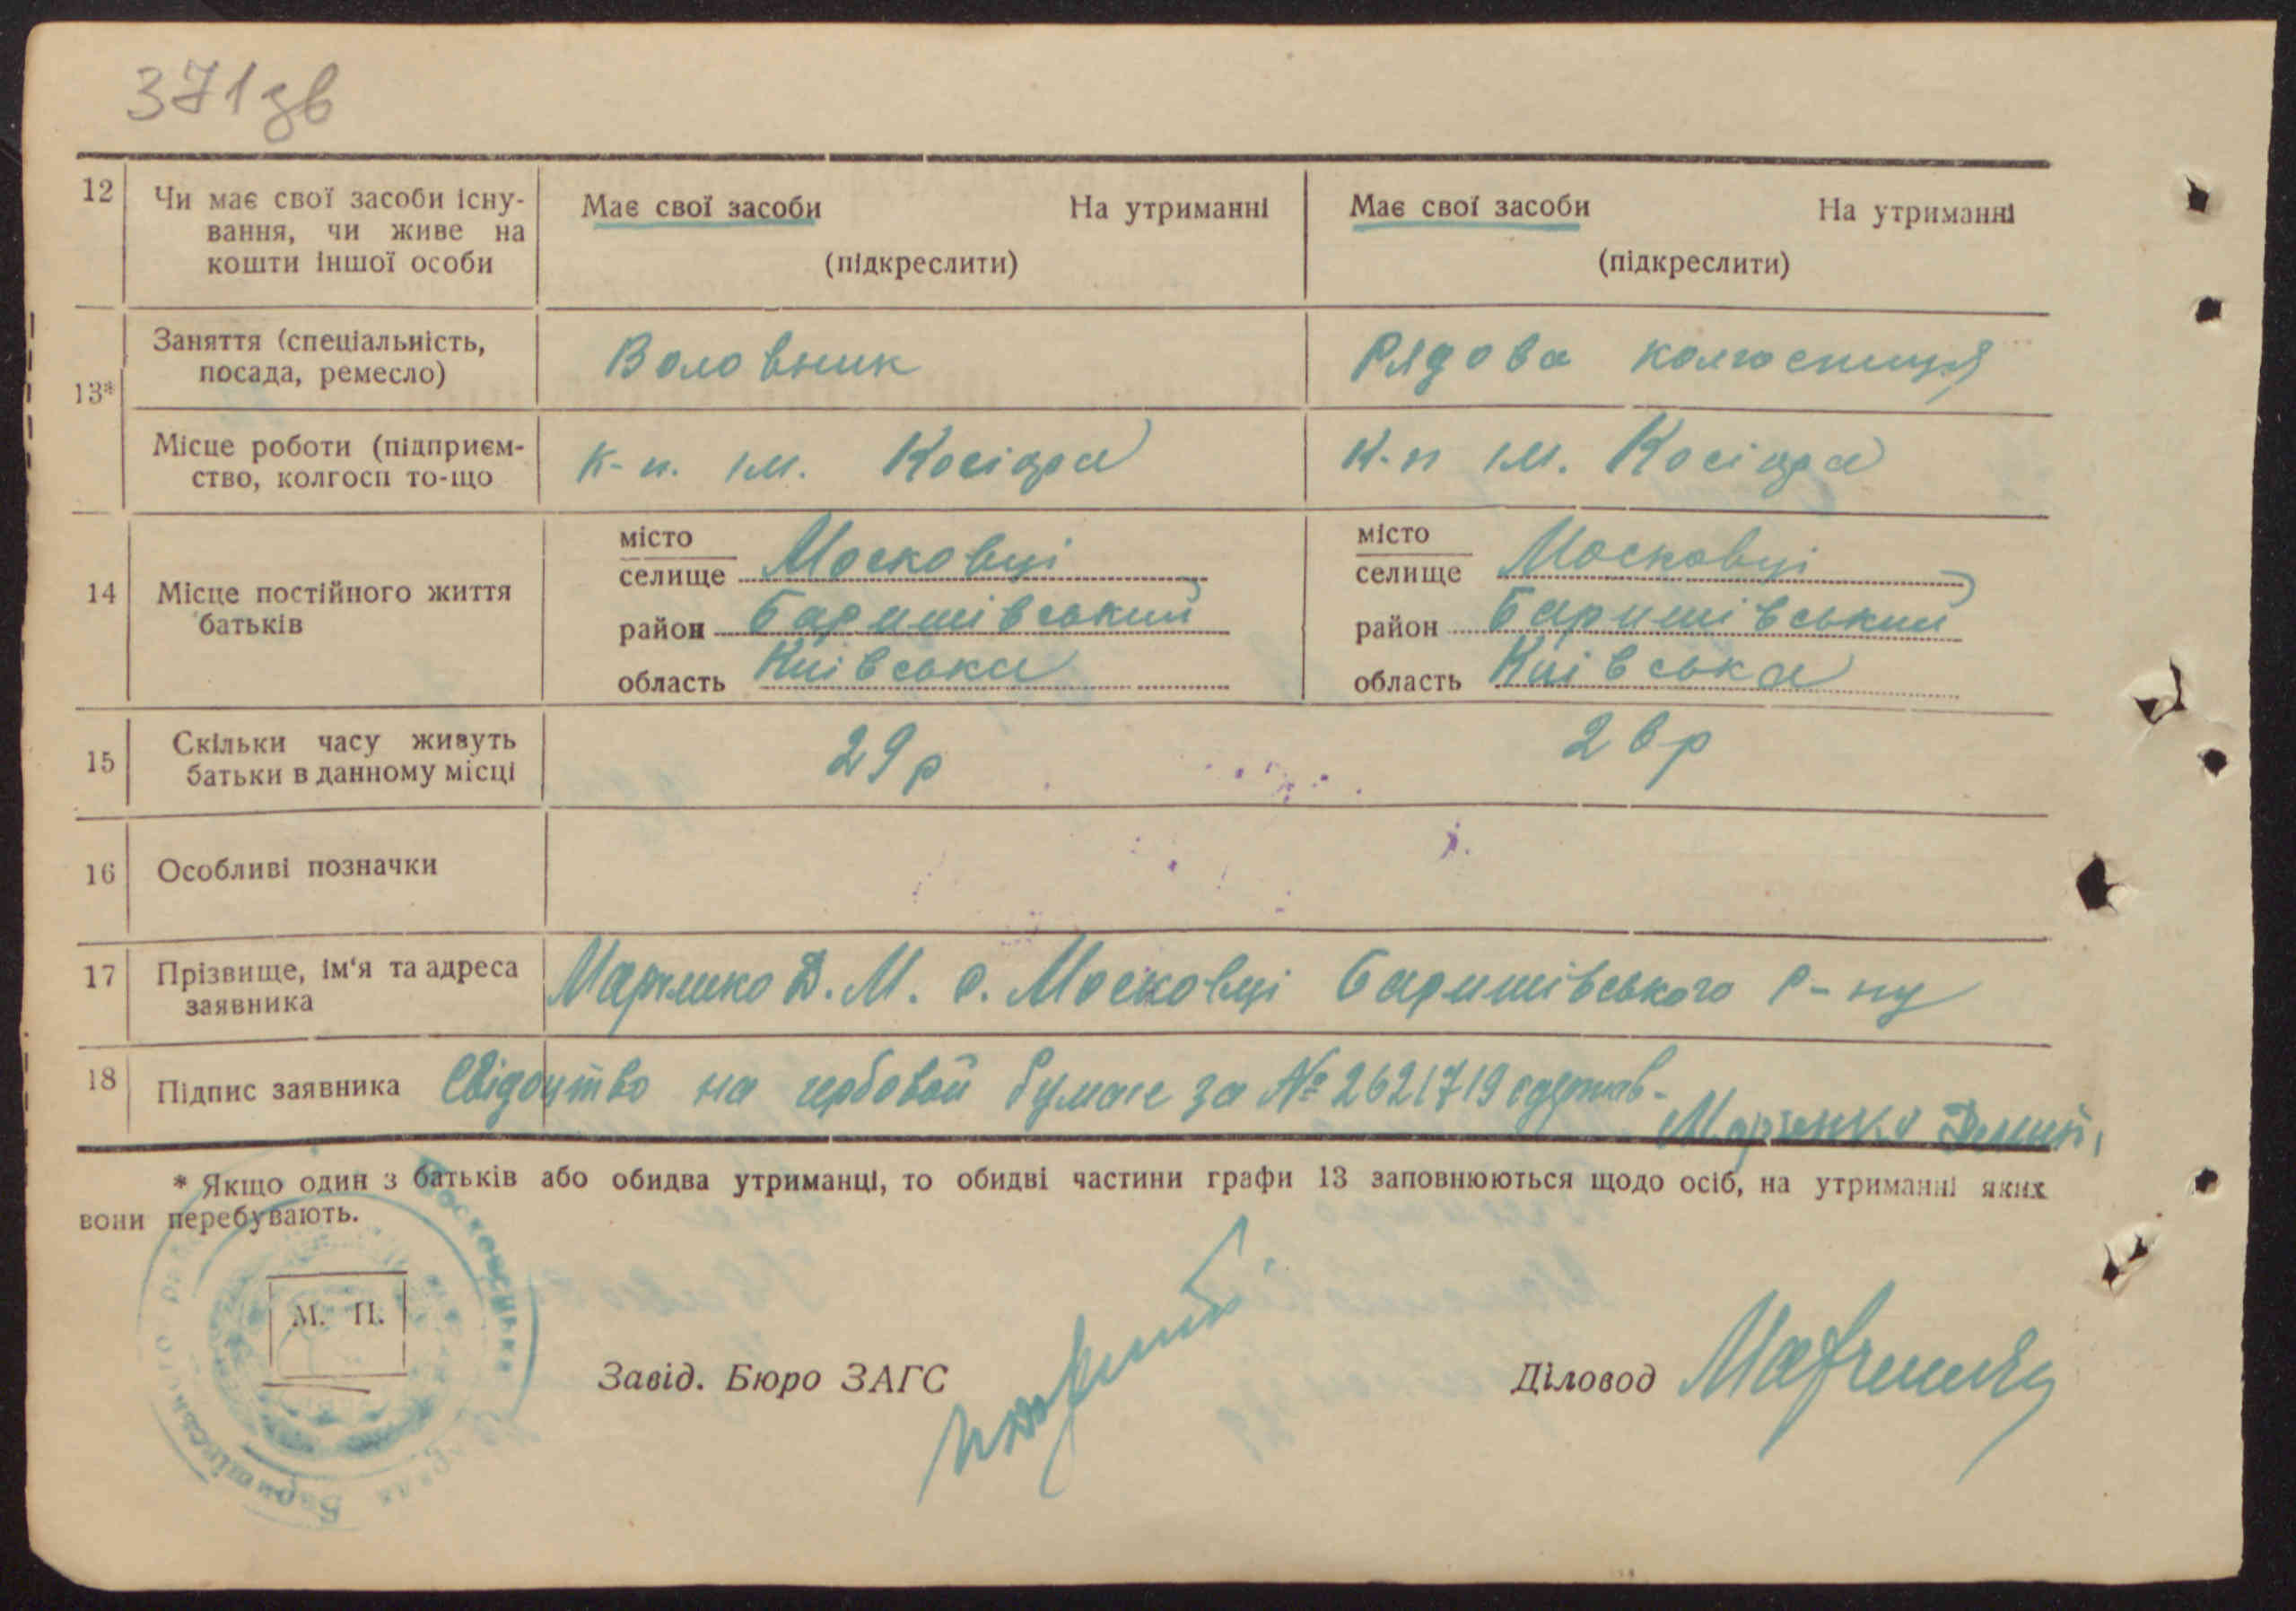 371 зв
12 Чи має свої засоби існу- Має свої засоби На утриманні Має свої засоби На утриманні
вання, чи живе на
кошти іншої особи (підкреслити) (підкреслити)
Заняття (спеціальність, Воловник Рядова колгоспниця
посада, ремесло)
13*
Місце роботи (підприєм- к-п. ім. Косіора к-п ім. Косіора
ство, колгосп то-що
місто місто
селище Московці селище Московці
14 Місце постійного життя район Баришівський район Баришівський
батьків
область Київська область Київська
15 Скільки часу живуть 29 р 26 р
батьки в данному місці
16 Особливі позначки
17 Прізвище, ім'я та адреса Марченко Д. М. с. Московці Баришівського р-ну
заявника
18 Підпис заявника Свідоцтво на гербовой бумаге за № 2621719 одержав-
Марченко Демид
* Якщо один з батьків або обидва утриманці, то обидві частини графи 13 заповнюються щодо осіб, на утриманні яких
вони перебувають.
М. П.
Завід. Бюро ЗАГС Діловод